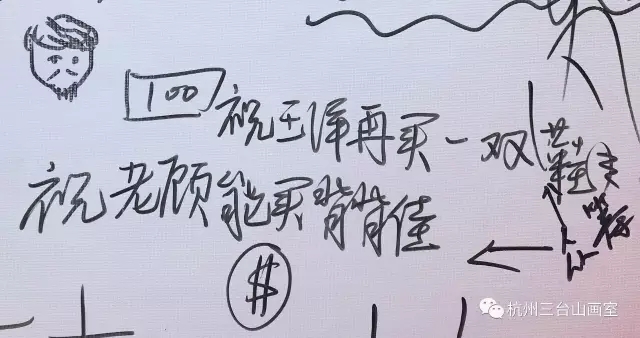 100 祝王洋再买一双鞋
祝老顾能买背背佳
$
杭州三台山画室